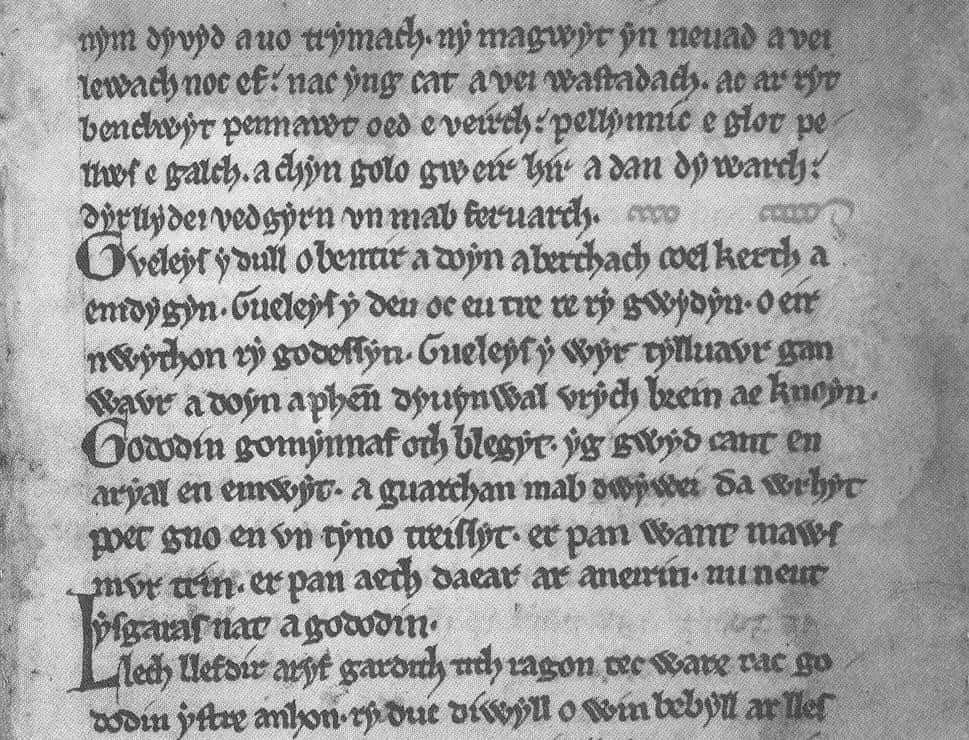 nẏm dẏvẏd a uo trẏmach. nẏ magwẏt ẏn neuad a vei
lewach noc ef. nac ẏng cat a vei wastadach. ac ar rẏt
benclwẏt pennawt oed e veirch. pellẏnnic e glot pe
llws e galch. a chẏn golo gweir hir a dan dẏwarch.
dẏrllẏdei vedgẏrn vn mab feruarch.
Gveleẏs ẏ dull o bentir a doẏn aberthach coel kerth a
emdẏgẏn. Gueleẏs ẏ deu oc eu tre re rẏ gwẏdẏn. o eir
nwẏthon rẏ godessẏn. Gueleẏs ẏ wẏr tẏlluavr gan
wavr a doẏn a phen dẏuẏnwal vrẏch brein ae knoẏn.
Gododin gomẏnnaf oth blegẏt. ẏg gwẏd cant en
arẏal en emwẏt. a guarchan mab dwẏwei da wrhẏt
poet gno en vn tẏno treissẏt. er pan want maws
mvr trin. er pan aeth daear ar aneirin. nu neut
ẏsgaras nat a gododin.
Llech llefdir arẏf gardith tith ragon tec ware rac go
dodin ẏstre anhon. rẏ duc diwẏll o win bebẏll ar lles